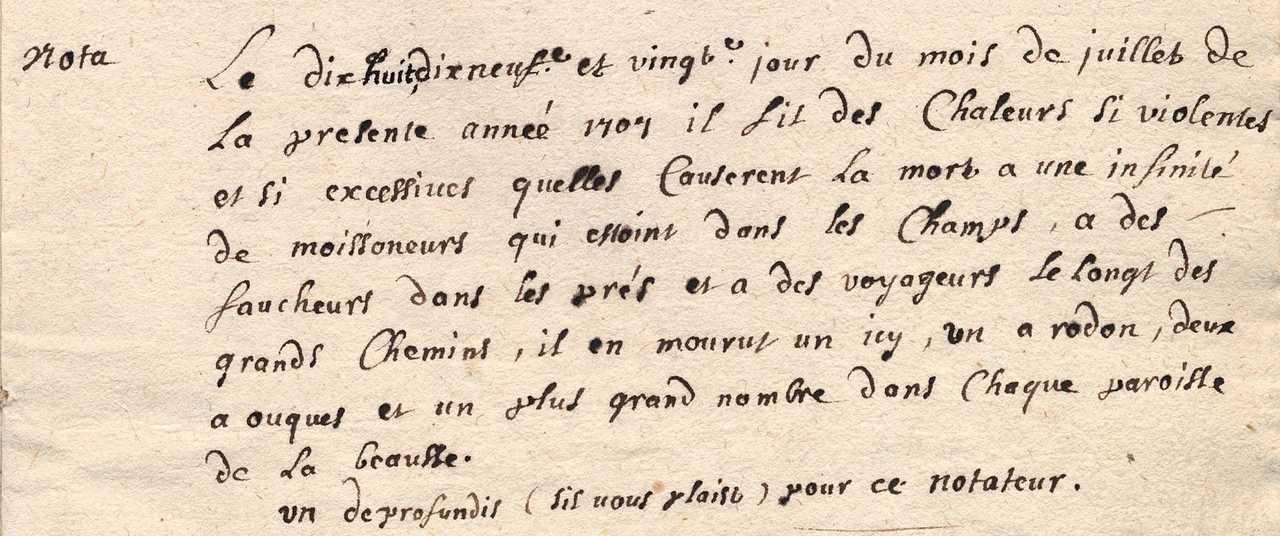 Nota Le dix huit dixneuf.e et vingt.e jour du mois de juillet de
La presente anneé 1707 il fit des Chaleurs si violentes
et si excessives quelles Causerent La mort a une infinité
de moissoneurs qui estoint dans les Champs, a des
faucheurs dans les prés et a des voyageurs Le Longt des
grands Chemins, il en mourut un icy, un a rodon, deux
a ouques et un plus grand nombre dans Chaque paroisse
de La beausse.
un deprofundis (sis vous plaist) pour ce notateur.